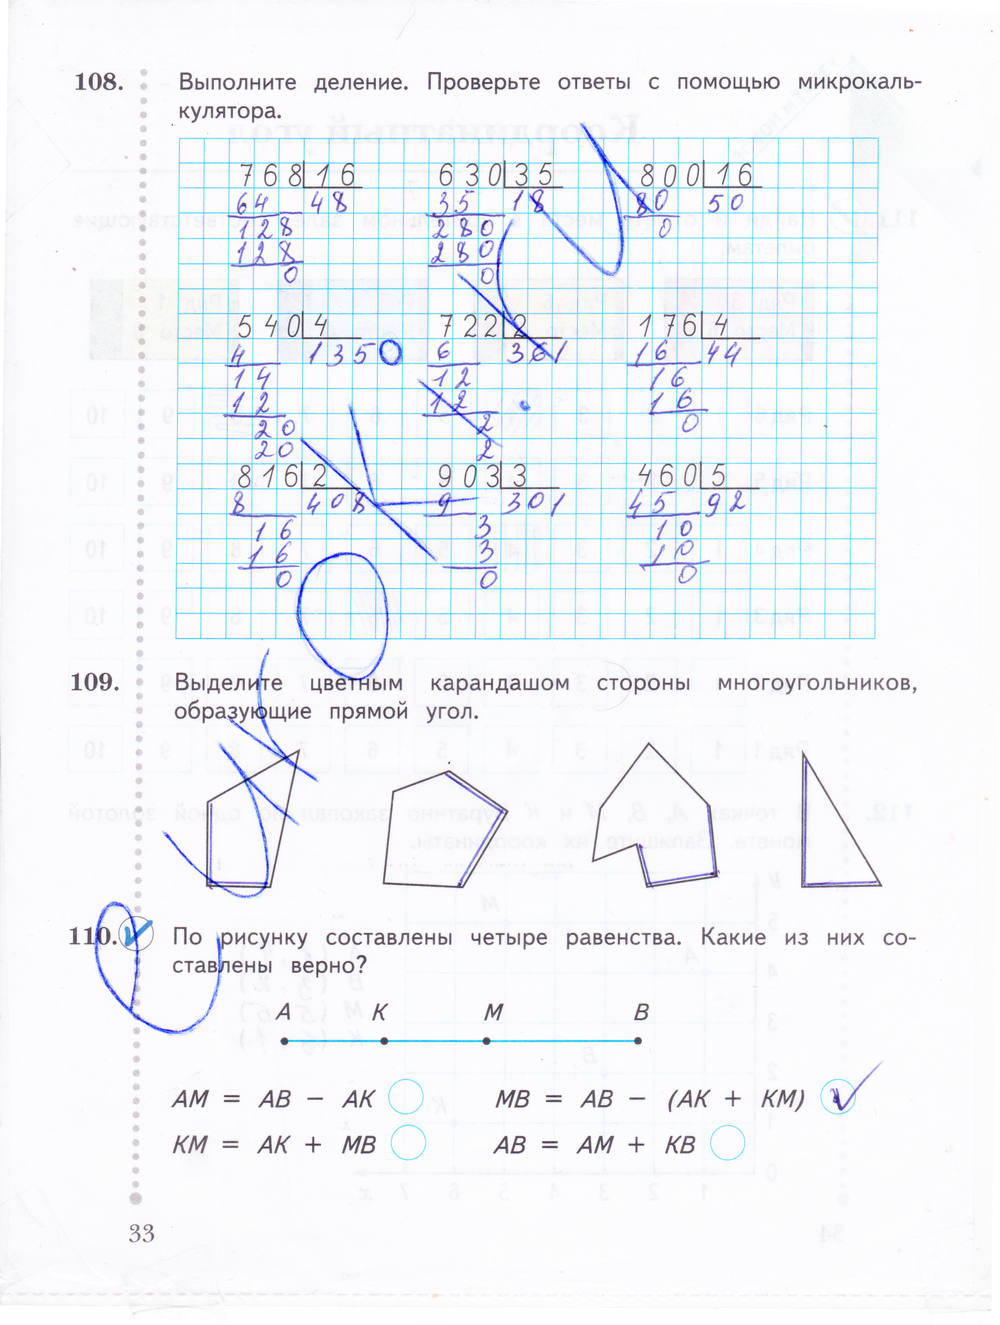 108. Выполните деление. Проверьте ответы с помощью микрокаль-
кулятора.
768 16 630 35 800 16
64 48 35 18 80 50
128 280 0
128 280
0 0
540 4 722 2 176 4
4 1350 6 361 16 44
14 12 16
12 12 16
20 2 0
20 2
816 2 903 3 460 5
8 408 9 301 45 92
16 3 10
16 3 10
0 0 0
109. Выделите цветным карандашом стороны многоугольников,
образующие прямой угол.
110. По рисунку составлены четыре равенства. Какие из них со-
ставлены верно?
A K M B
AM = AB − AK MB = AB − (AK + KM)
KM = AK + MB AB = AM + KB
33